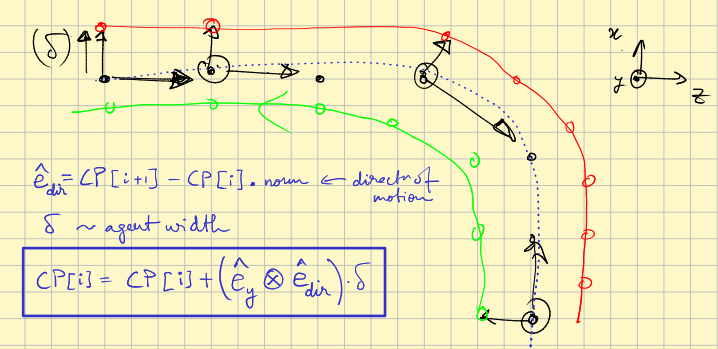 (δ)
x
y
z
ê_dir = CP[i+1] - CP[i].norm ← direct° of
motion
δ ~ agent width
CP[i] = CP[i] + (ê_y ⊗ ê_dir)·δ